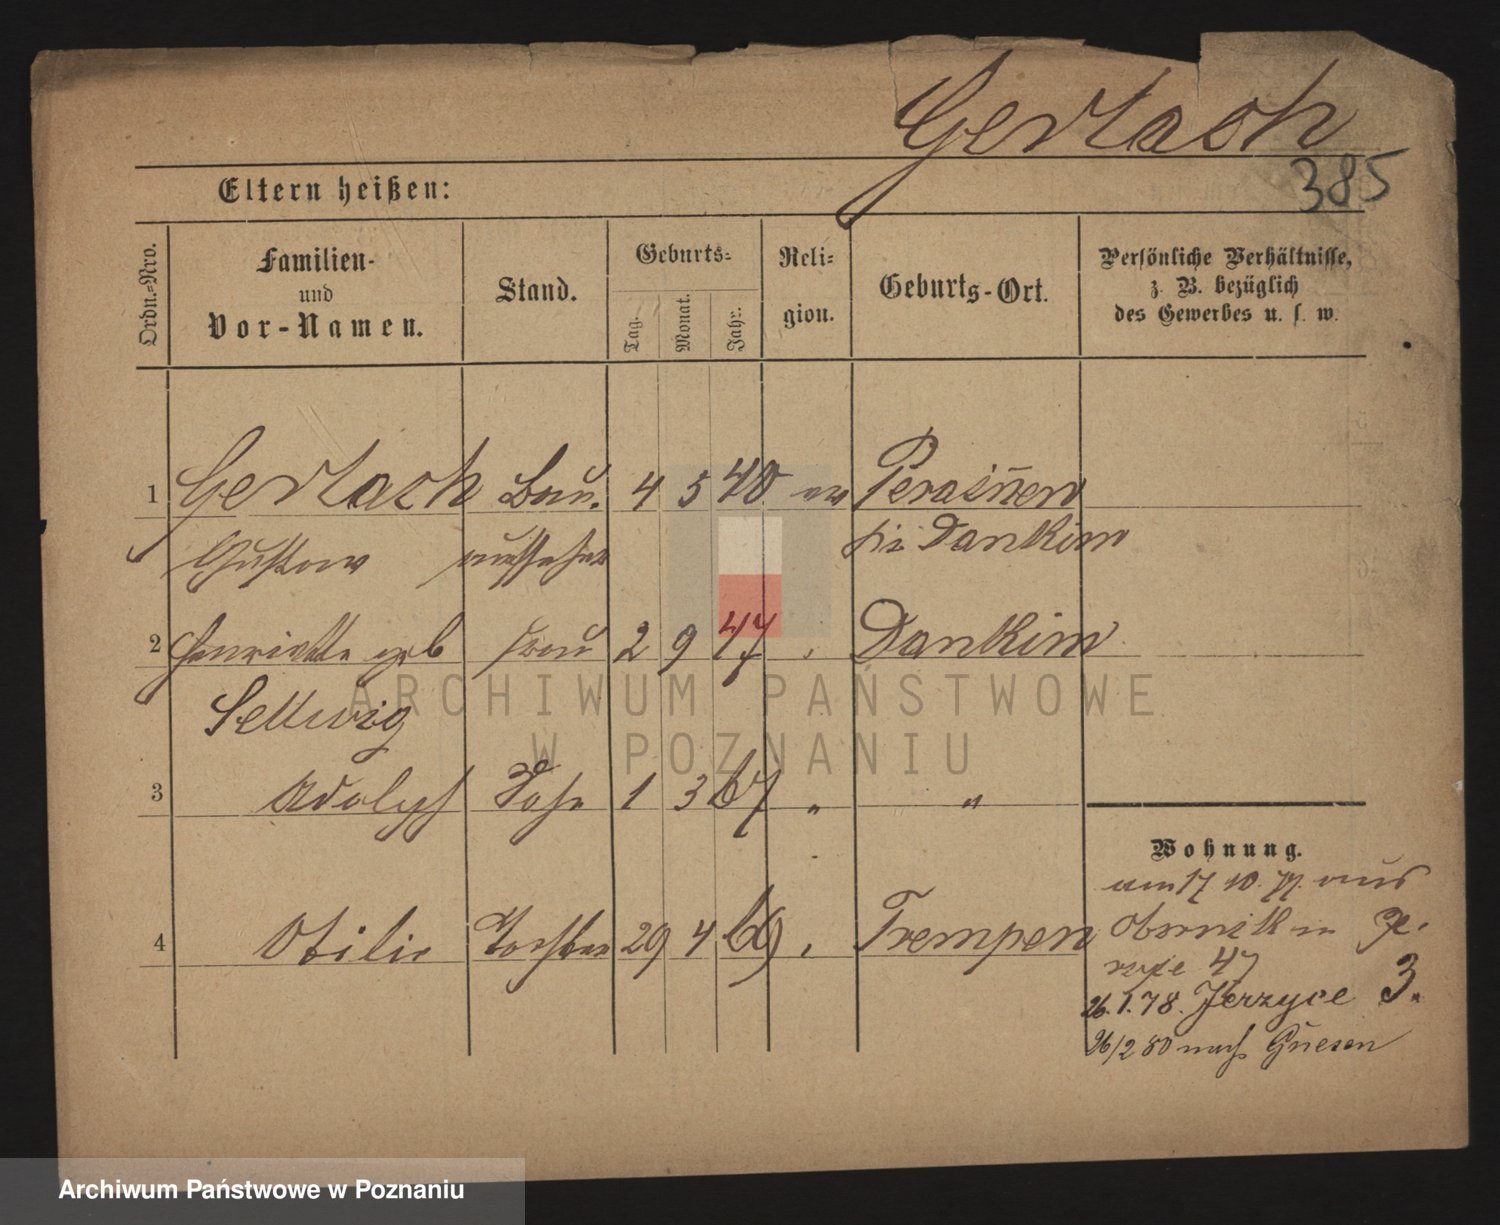 Gerlach
385
Eltern heißen:
Ordn.-Nro.
Familien-
und
Vor-Namen.
Stand.
Geburts-
Tag.
Monat.
Jahr.
Reli-
gion.
Geburts-Ort.
Persönliche Verhältnisse,
z. B. bezüglich
des Gewerbes u. s. w.
1 Gerlach Bau. 4 5 40 ev
Gustav aufseher Dankim
2 Henriette geb Frau 2 9 47 Dankim
Sellwig
3 Adolph Sohn 1 3 67 " "
4 Otilie Tochter 29 4 69 Trempen
Wohnung.
am 17 10. 77. aus
Obornik in Je-
47
26. 1. 78. Jerzyce 3.
26/2 80 nach Gnesen
ARCHIWUM PAŃSTWOWE
W POZNANIU
Archiwum Państwowe w Poznaniu